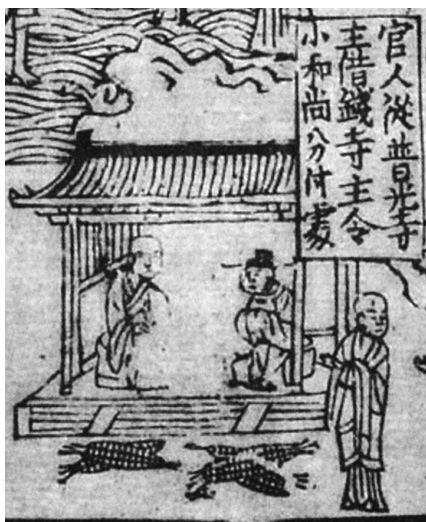 官人從普光寺
主借錢寺主令
小和尚分付處